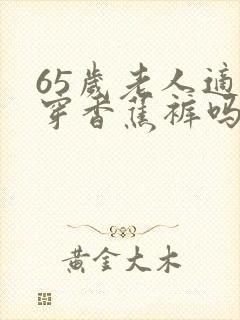 65岁老人适
穿香蕉裤吗
黄金大木